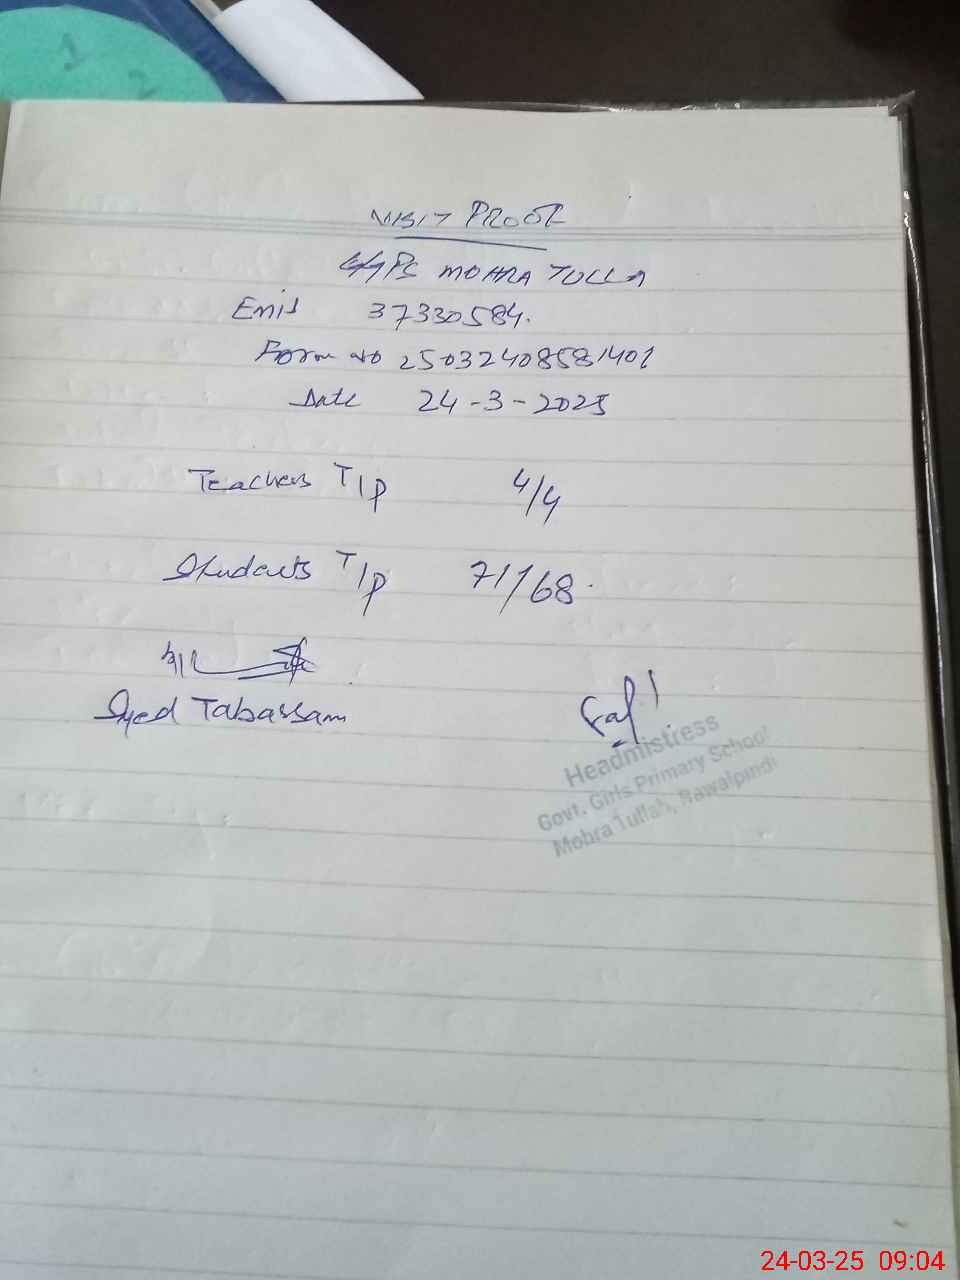 1
2
VISIT PROOF
GGPS MOHRA TULLA
Emis 37330584.
Form no 25032408581401
Date 24-3-2025
Teachers T/P 4/4
Students T/P 71/68.
Syed Tabassam
Headmistress
Govt. Girls Primary School
Mohra Tullah, Rawalpindi
24-03-25 09:04